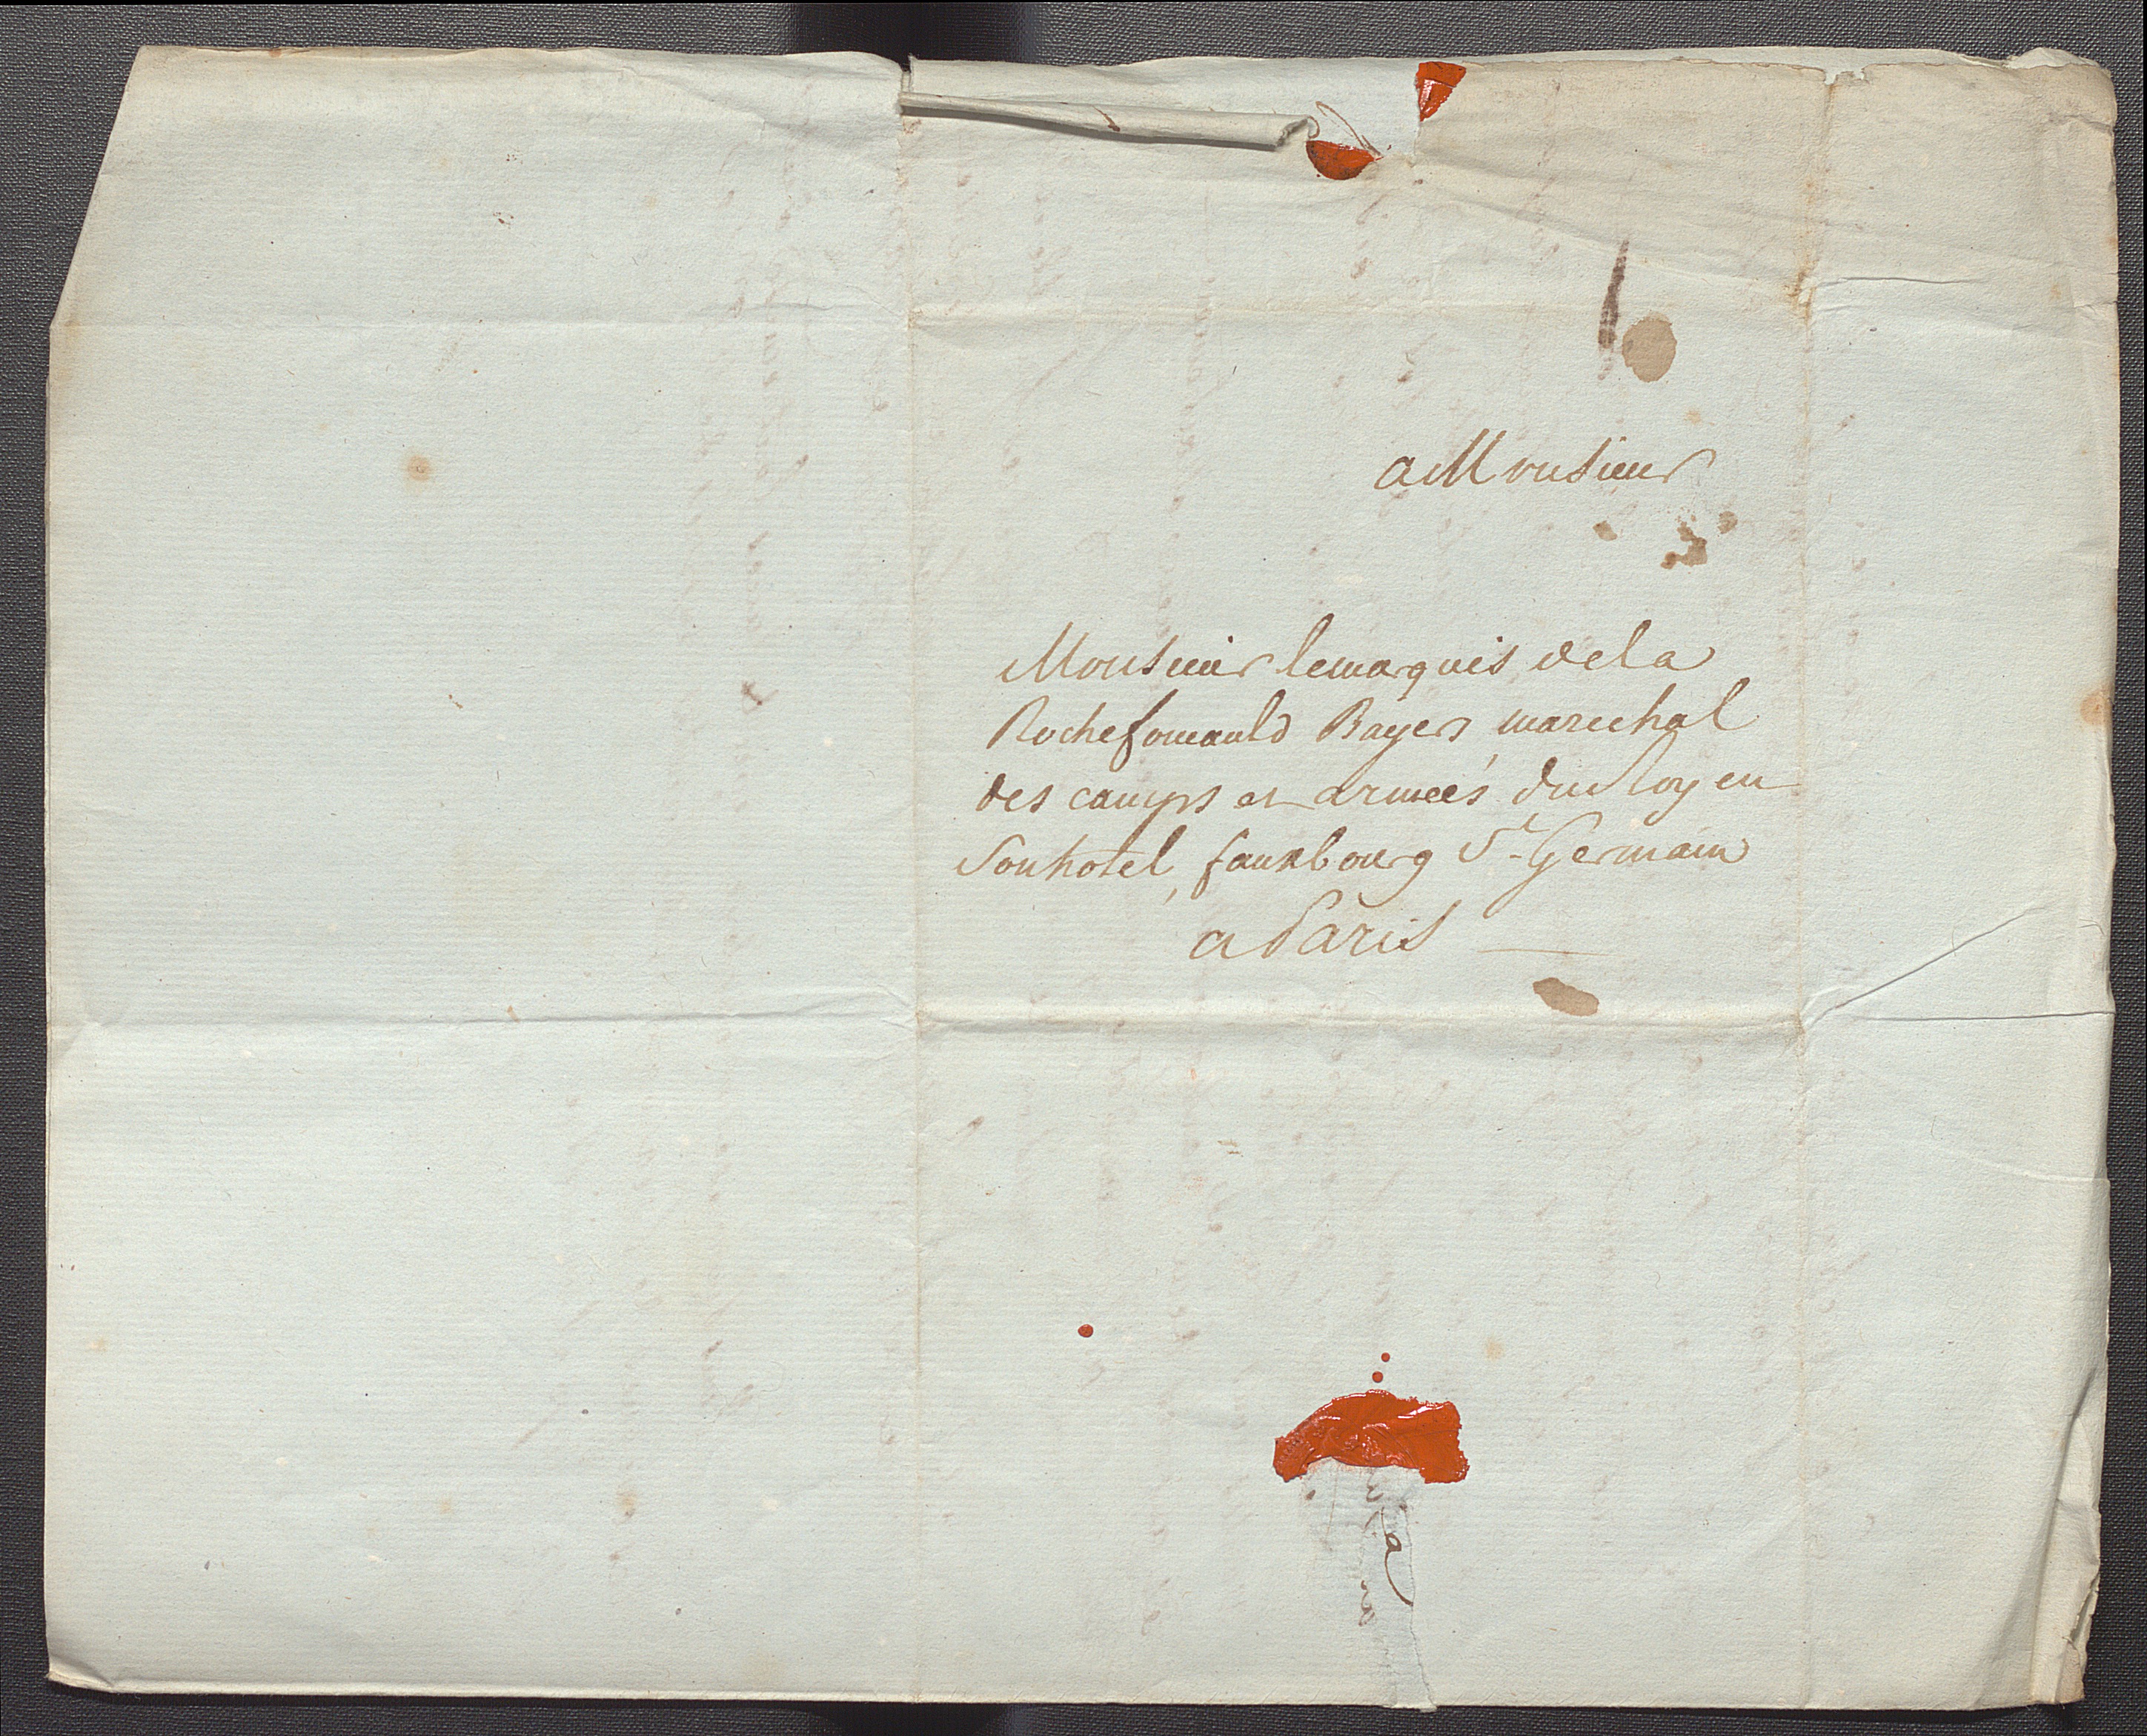 a Monsieur
Monsieur le marquis de la
Rochefoucauld Bayers marechal
des camps et armeés du Roy en
Son hotel, fauxbourg St. Germain
a Paris